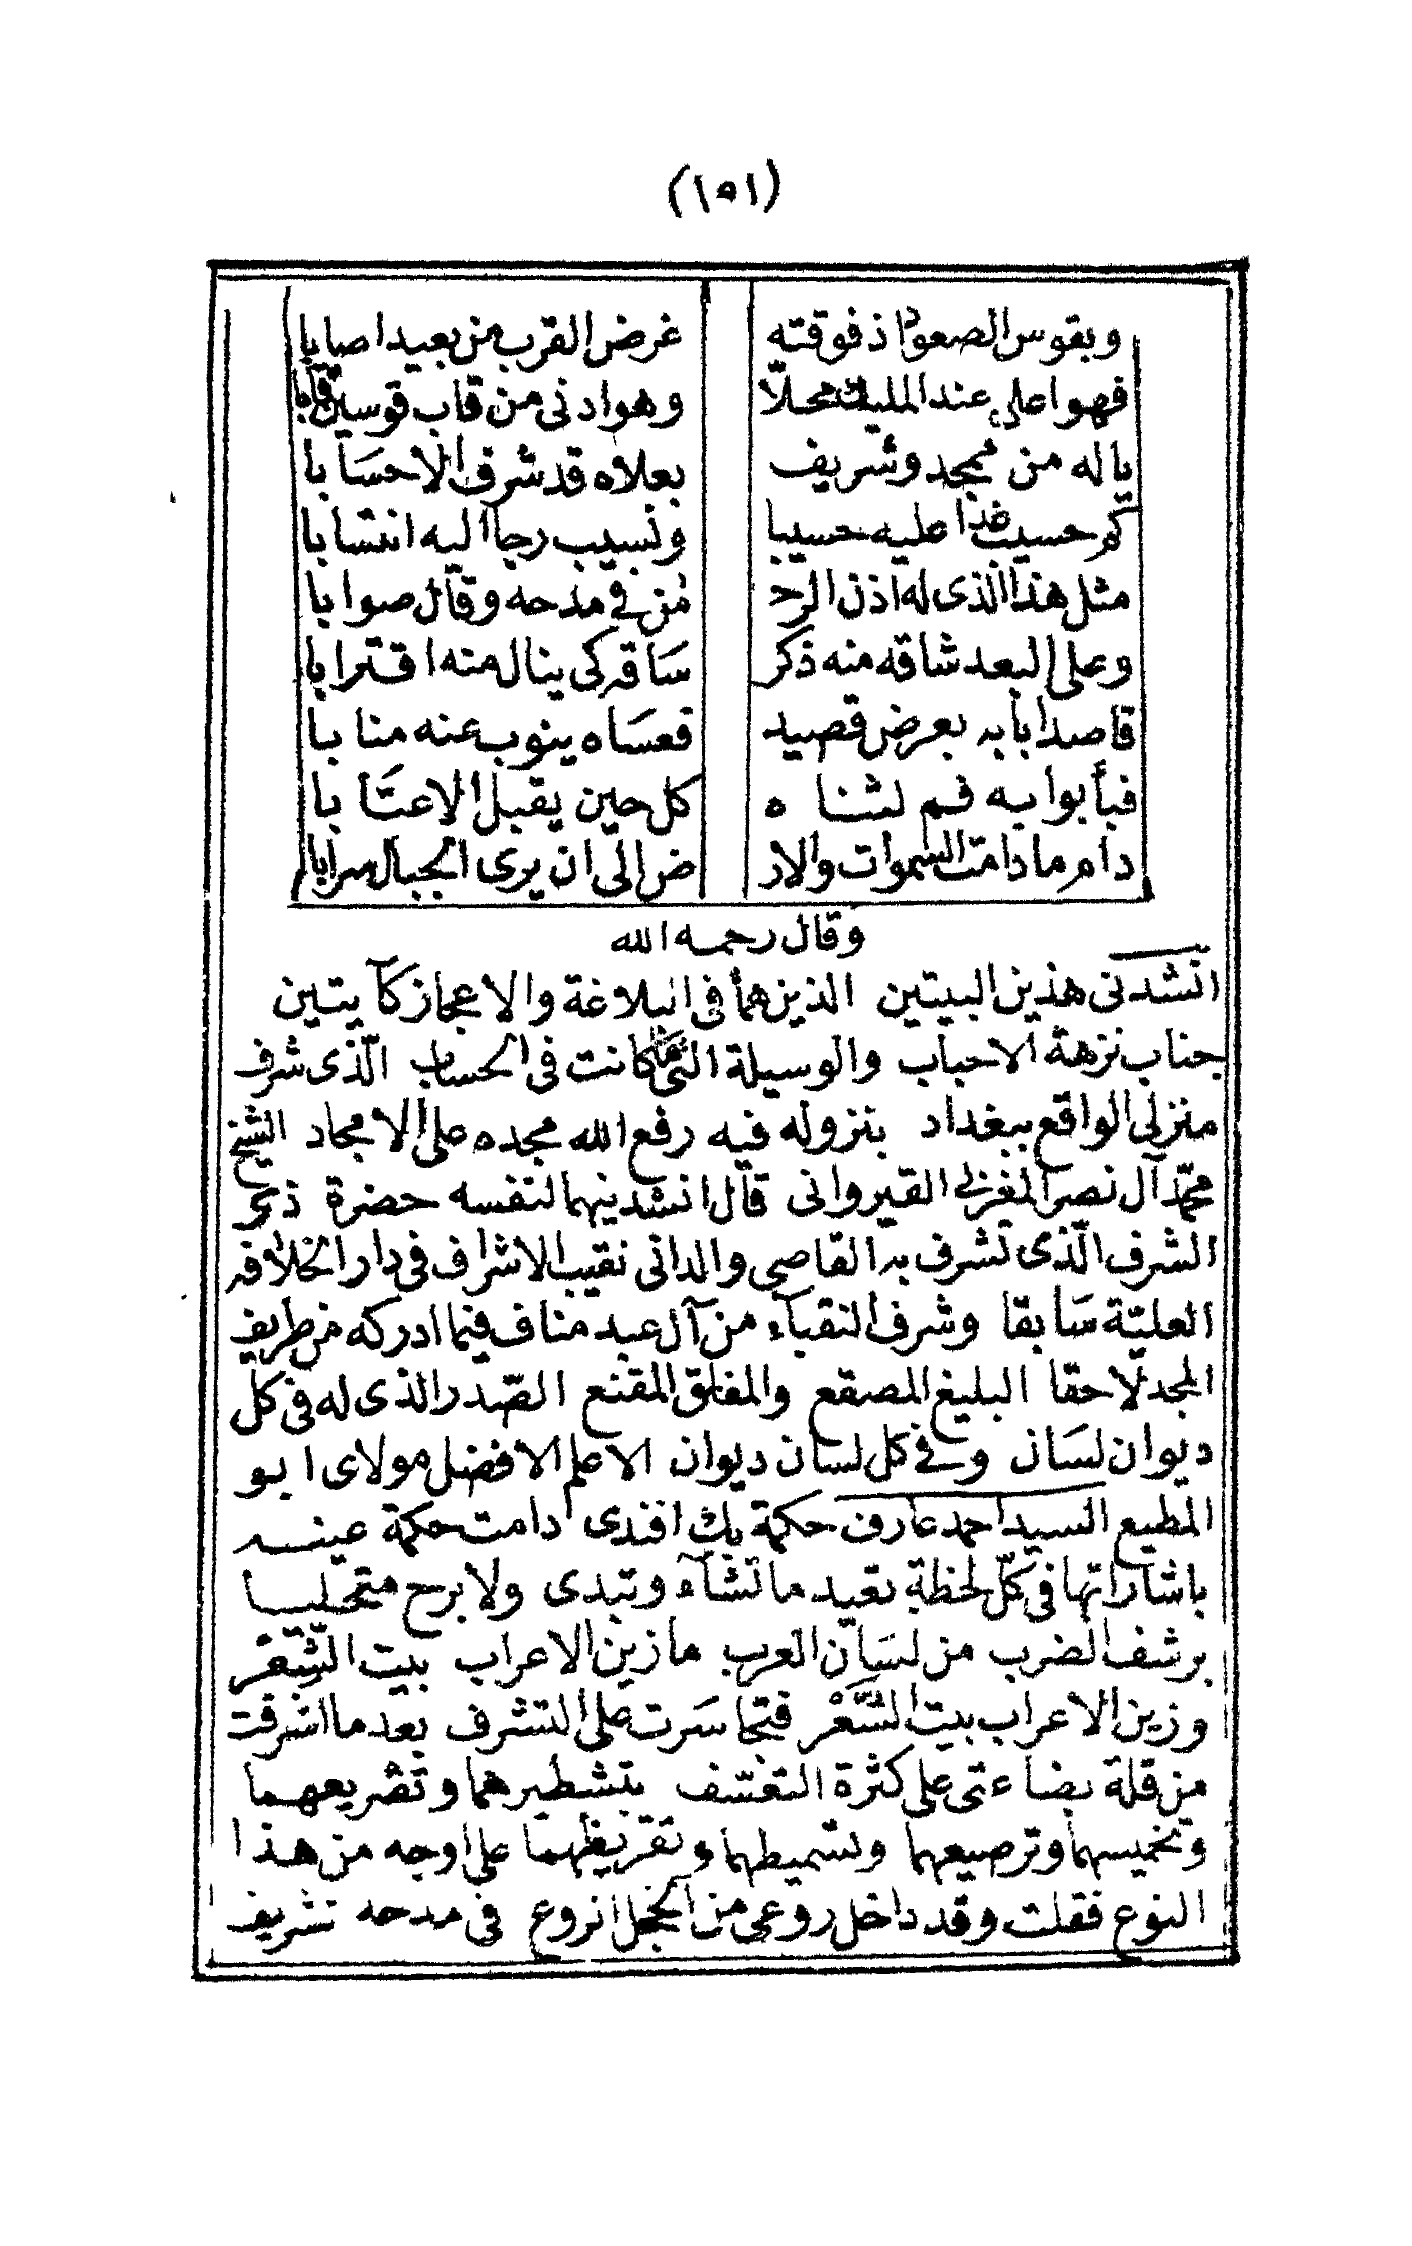 (١٥١)
وبقوس الصعود اذ فوقته غرض القرب من بعيد اصابا
فهو اعلى عند المليك محلّا وهو ادنى من قاب قوسين قابا
يا له من ممجد وشريف بعلاه قد شرف الاحسابا
كم حسيب غدا عليه حسيبا ونسيب رجا اليه انتسابا
مثل هذا الذى له اذن الرحـ ـمن فى مدحه وقال صوابا
وعلى البعد شاقه منه ذكر ساقه كى ينال منه اقترابا
قاصدا بابه بعرض قصيد فعساه ينوب عنه منابا
فبأبوابه فم لثناه كل حين يقبل الاعتابا
دام ما دامت السموات والار ض الى ان يرى الجبال سرابا
وقال رحمه الله
انشدنى هذين البيتين الذين هما فى البلاغة والاعجاز كآيتين
جناب نزهة الاحباب والوسيلة التى ما كانت فى الحساب الّذى شرف
منزلى الواقع ببغداد بنزوله فيه رفع الله مجده على الامجاد الشيخ
محمّد آل نصر المغربى القيروانى قال انشدنيهما لنفسه حضرة ذكر
الشرف الّذى تشرف به القاصى والدانى نقيب الاشراف فى دار الخلافه
العليّة سابقا وشرف النقباء من آل عبد مناف فيما ادركه من طريف
المجد لاحقا البليغ المصقع والمفلق المقنع الصّدر الذى له فى كل
ديوان لسان وفى كل لسان ديوان الاعلم الافضل مولاى ابو
المطيع السيد احمد عارف حكمة بك افندى دامت حكمة عينـه
باشاراتها فى كلّ لحظة تعيد ما تشآء وتبدى ولا برح متحليـا
برشف الضرب من لسان العرب ما زين الاعراب بيت الشِّعْر
وزين الاعراب بيت الشَّعْر فتجاسرت على التشرف بعد ما اشرقت
من قلة بضاعتى على كثرة التعسّف بتشطيرهما وتصريعهما
وتخميسهما وترصيعهما وتسميطهما وتقريظهما على اوجه من هذا
النوع فقلت وقد داخل روعى من الخجل انروع فى مدحه تشريف